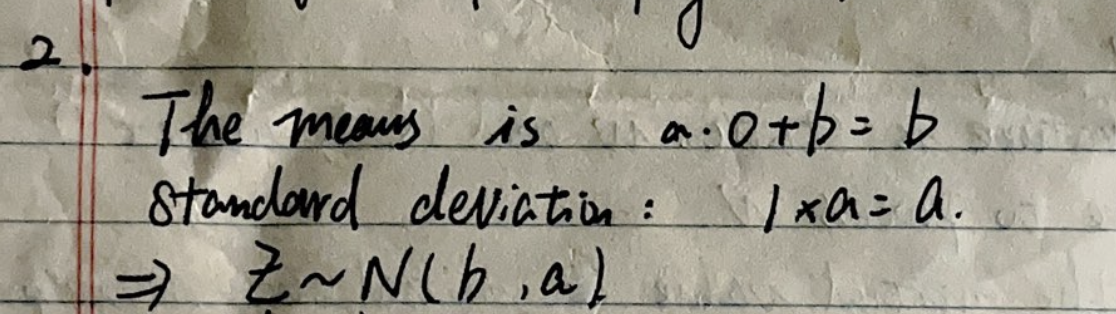 2.
The means is a·0+b=b
standard deviation: 1×a=a.
⇒ Z~N(b,a)